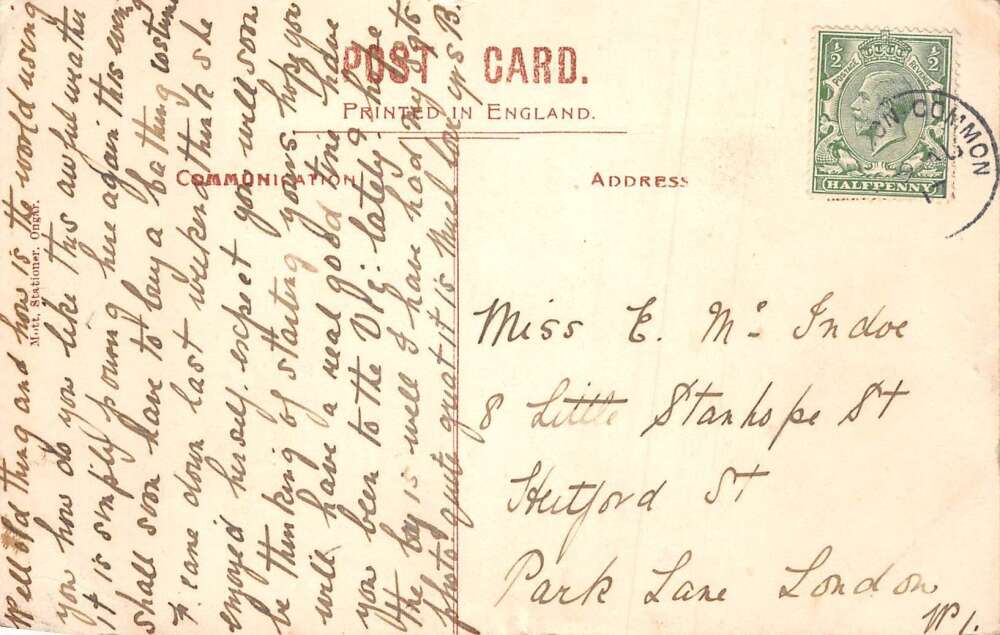 POST CARD.
PRINTED IN ENGLAND.
COMMUNICATION
ADDRESS
Mott, Stationer, Ongar.
½ ½
POSTAGE REVENUE
HALFPENNY
ON COMMON
Well old thing and how is the world using
you how do you like this awful weather
it is simply pouring here again this evening
shall soon have to buy a bathing costume
came down last weekend think she
enjoyed herself. expect you will soon
be thinking of starting yours hope you
will have a real good time have
you been to the lately, & hope
the boy is well I have had my 5 gts
photo quite great it is Much love yrs B.
Miss E. Mc Indoe
8 Little Stanhope St
Hertford St
Park Lane London
W1.